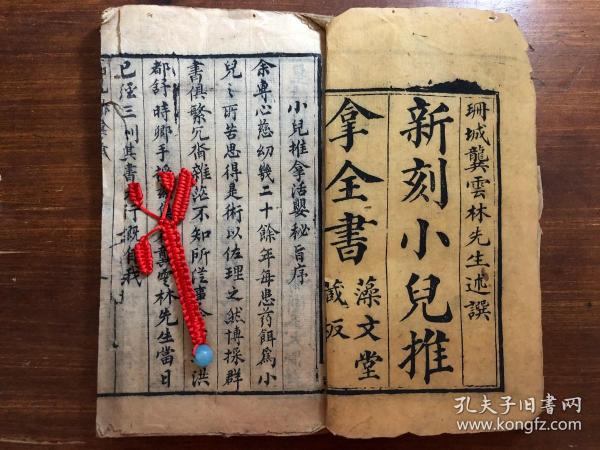 珊城龔雲林先生述譔
新刻小兒推
拿全書
藻文堂
藏板
小兒推拿活嬰秘旨序
余專心慈幼幾二十餘年每患药餌爲小
兒之所苦思得是術以佐理之然博採群
書俱繁冗裔雜茫不知所從事
洪
都舒時卿手
龔雲林先生當日
已經三刊其書
行慨自我
孔夫子旧书网
www.kongfz.com